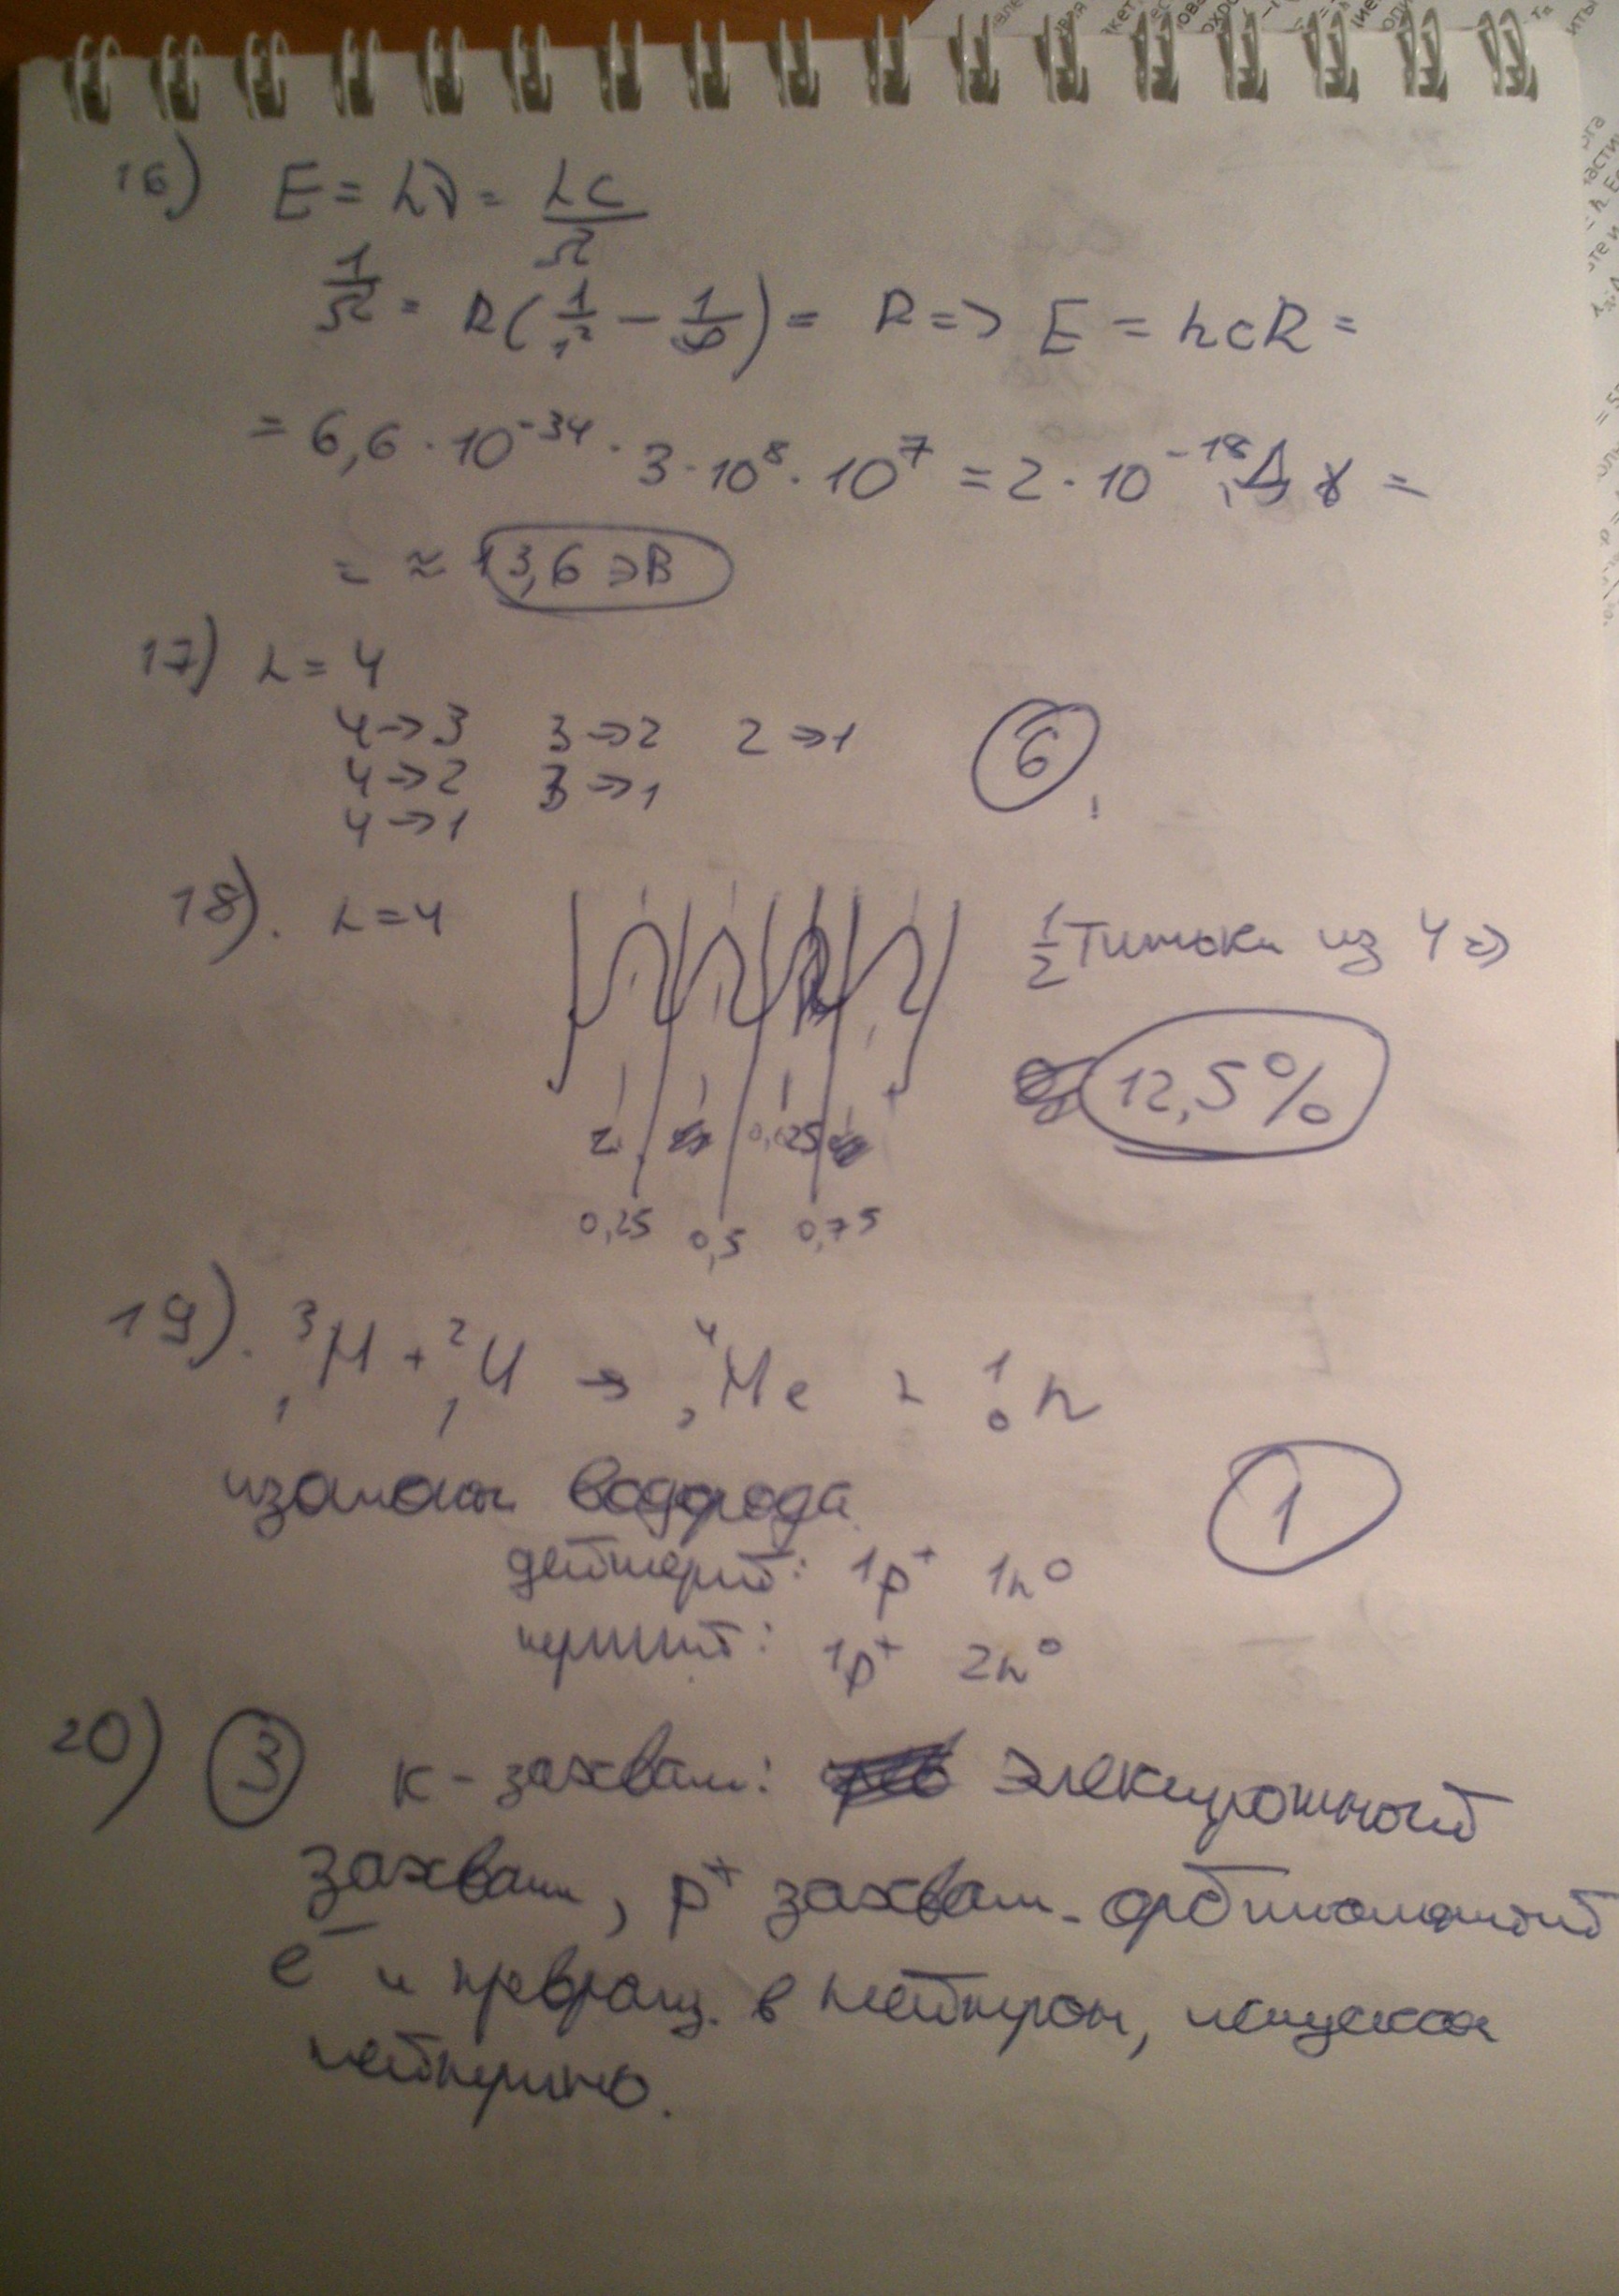 16) E = hν = hc/λ
1/λ = R(1/1² − 1/∞) = R => E = hcR =
= 6,6 · 10⁻³⁴ · 3 · 10⁸ · 10⁷ = 2 · 10⁻¹⁸ Дж =
= ≈ 13,6 эВ
17) n = 4
4→3 3→2 2→1 6
4→2 3→1
4→1
18). n = 4 1/2 титьки из 4 =>
12,5%
0,25 0,5 0,75
19). ³₁H + ²₁H → ⁴₂He + ¹₀n
изотопы водорода 1
дейтерий: 1p⁺ 1n⁰
тритий: 1p⁺ 2n⁰
20) 3 К-захват: электронный
захват, p⁺ захват. орбитальный
e⁻ и превращ. в нейтрон, испуская
нейтрино.